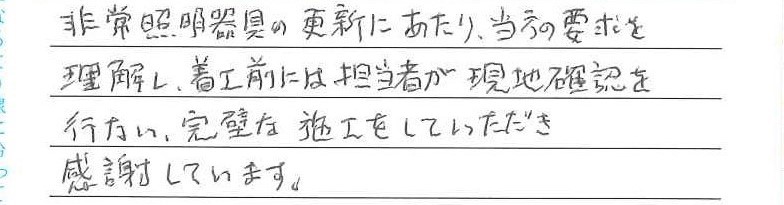 非常照明器具の更新にあたり、当方の要求を
理解し、着工前には担当者が現地確認を
行ない、完璧な施工をしていただき
感謝しています。